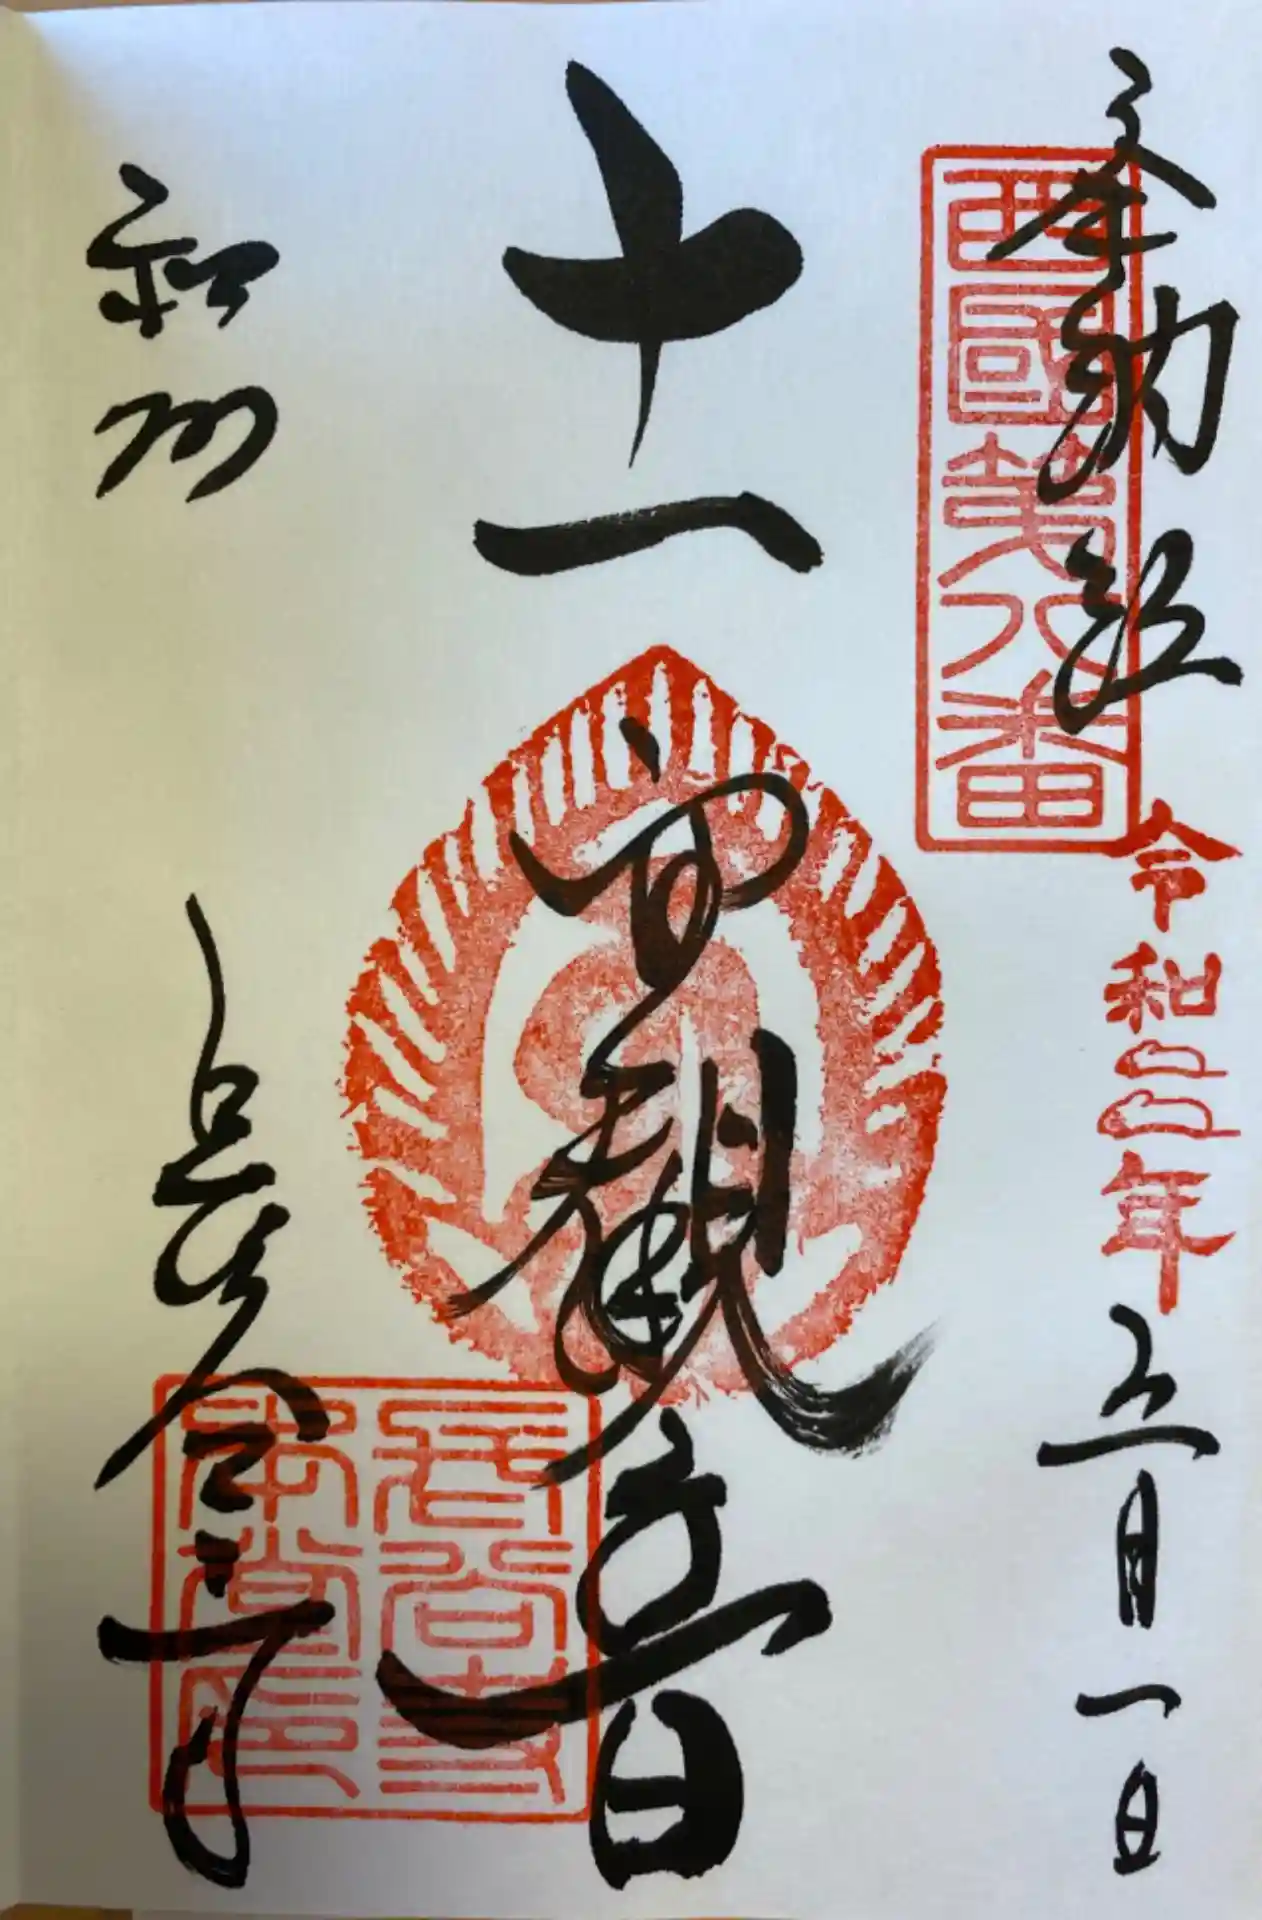 奉納経
西國第八番
令和二年五月一日
十一面観音
和州
長谷寺
長谷寺
本堂印